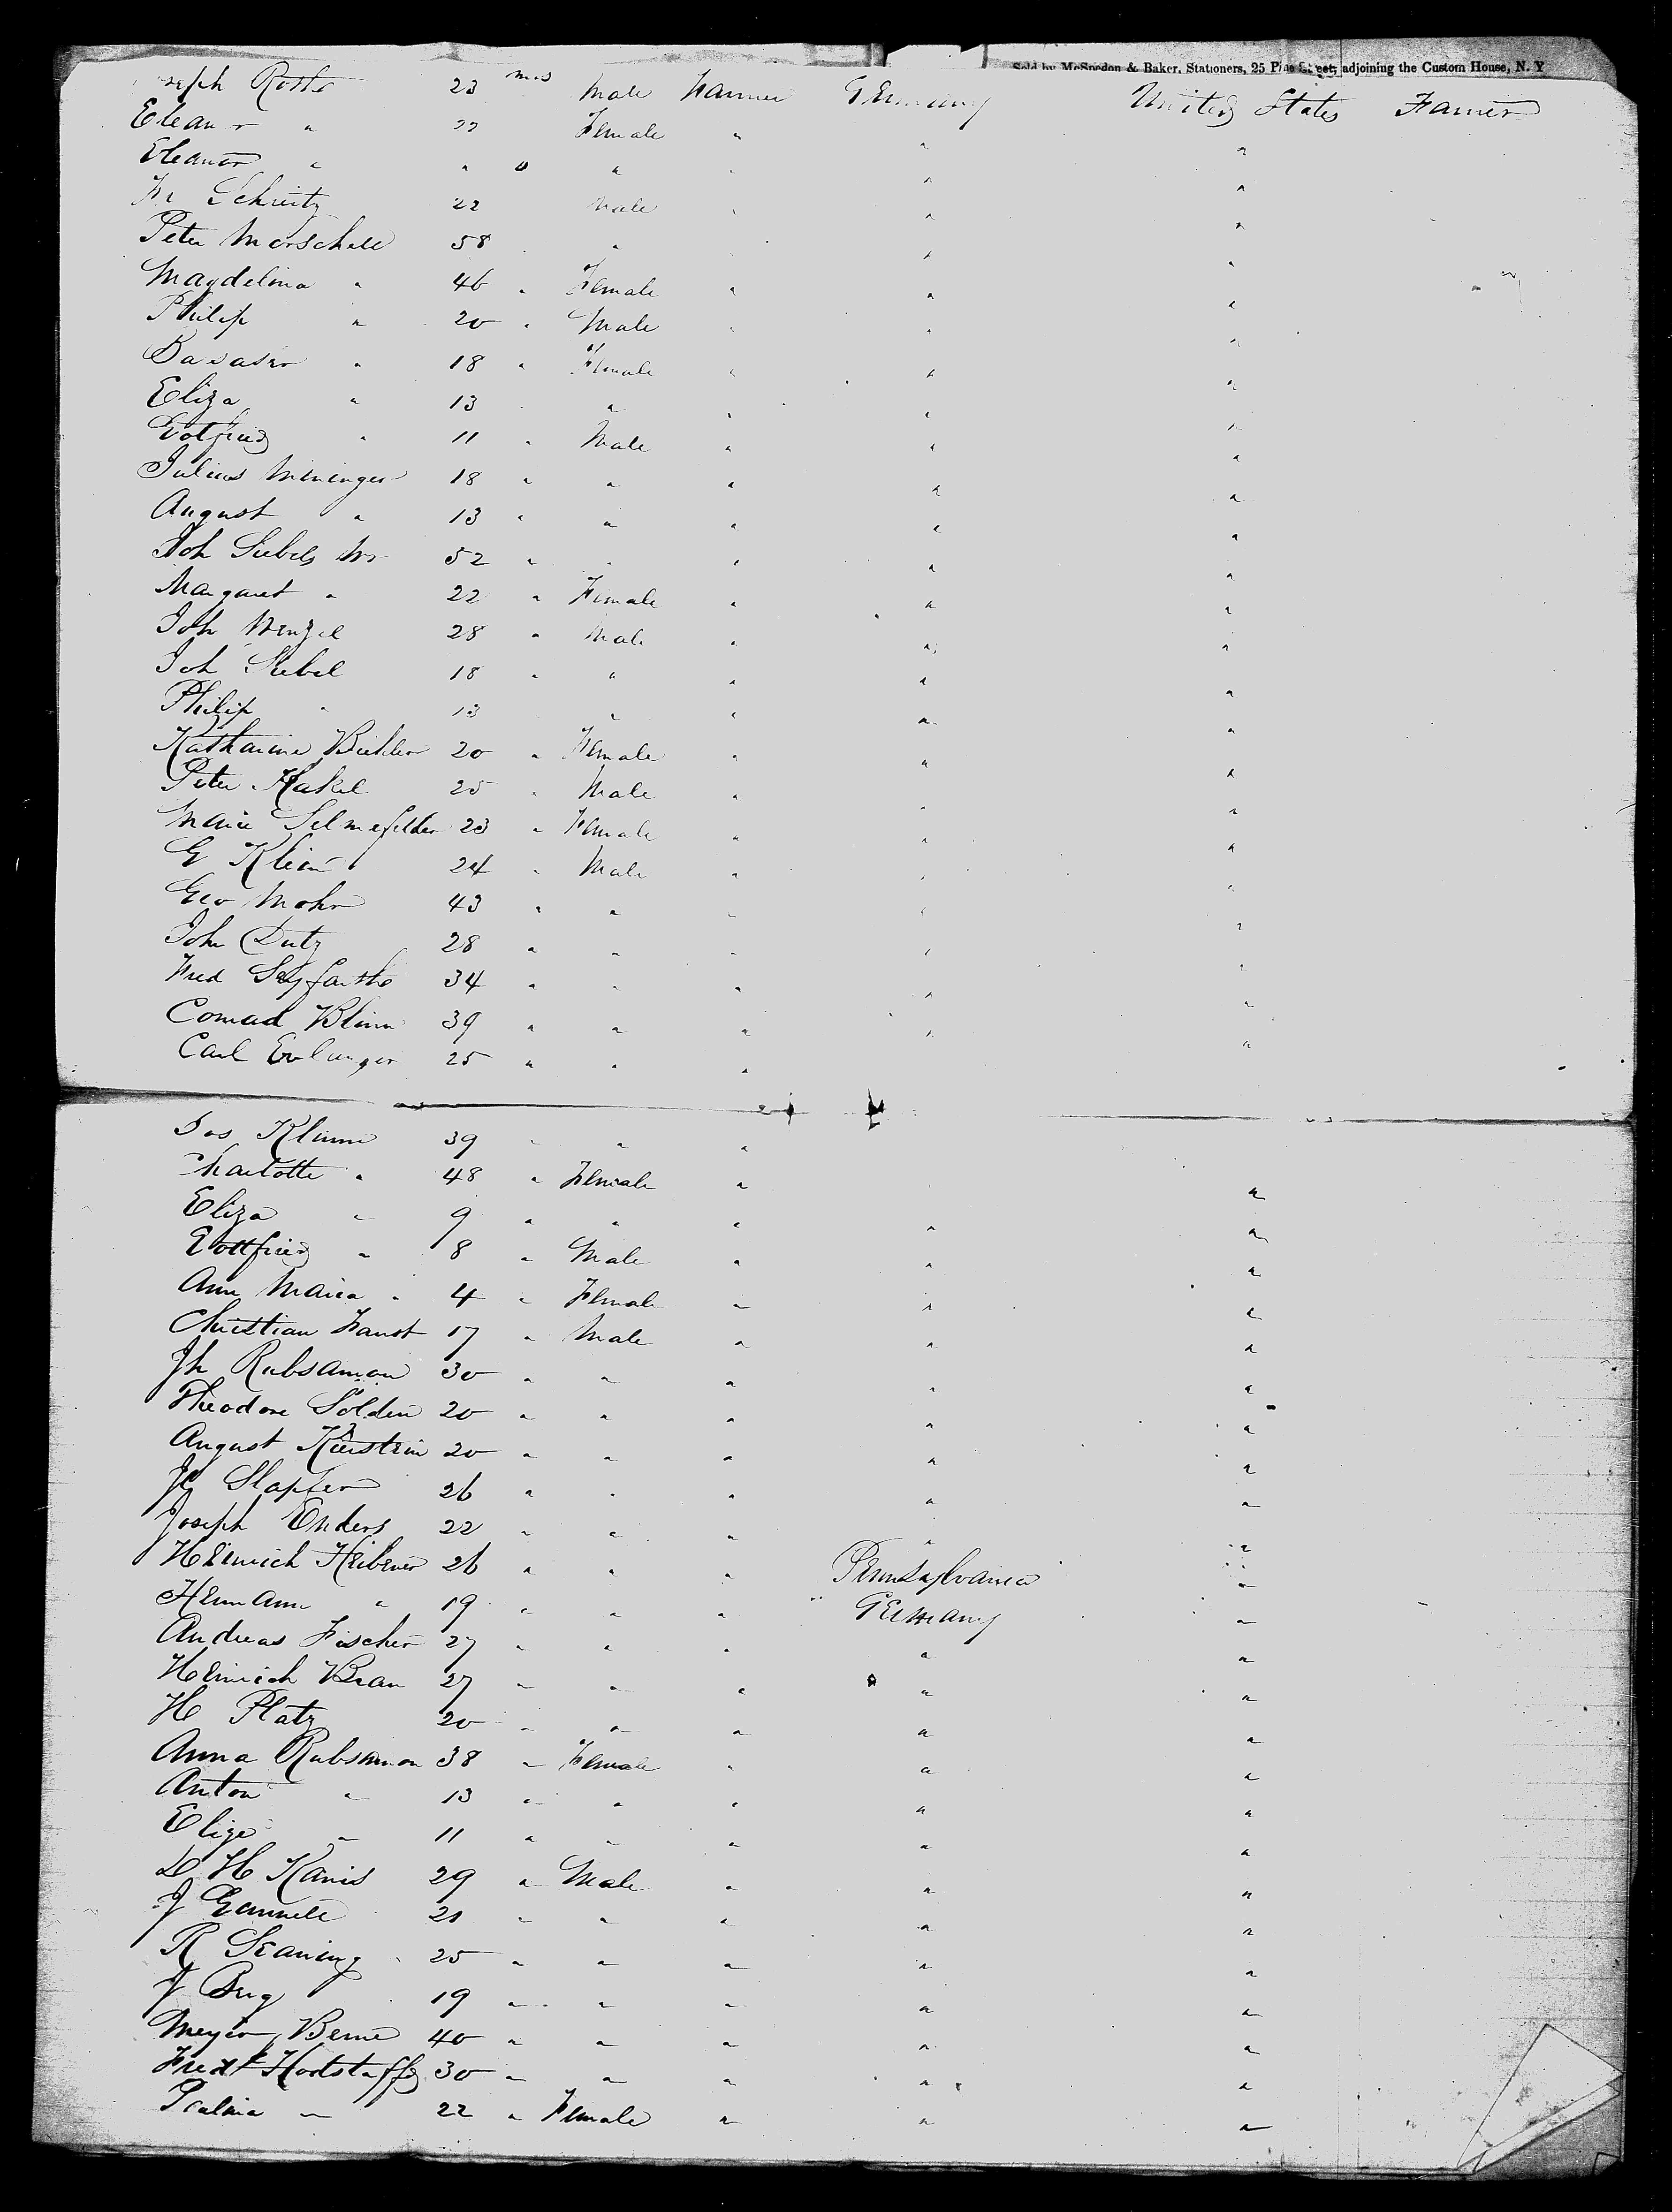 Sold by McSpedon & Baker, Stationers, 25 Pine Street, adjoining the Custom House, N. Y
Joseph Roths 23 mos Male Farmer Germany United States Farmer
Eleanor " 22 Female " " "
Eleanor " " " " " "
Fr Schmitz 22 Male " " "
Peter Morschell 58 " " " "
Magdelina " 46 " Female " " "
Philip " 20 " Male " " "
18 " Female " " "
Eliza " 13 " " " "
Gotfried " 11 " Male " " "
Julius Mininger 18 " " " " "
August " 13 " " " " "
Joh Siebels 52 " " " " "
Margaret " 22 " Female " " "
Joh Wenzel 28 " Male " " "
Joh Siebel 18 " " " " "
Philip " 13 " " " "
Katharine Biehler 20 " Female " " "
Peter Hakel 25 " Male " " "
Marie Selmefelder 23 " Female " " "
G Klein 24 " Male " " "
Geo Mohr 43 " " " " "
John Dutz 28 " " " " "
Fred Seyfarth 34 " " " " "
Conrad Blinn 39 " " " " "
Carl 25 " " "
Jos Klimm 39 " " "
Charlotte " 48 " Female " "
Eliza " 9 " " " " "
Gottfried " 8 " Male " " "
Ann Maria " 4 " Female " " "
Christian Faust 17 " Male " " "
Jh Rubsamon 30 " " " " "
Theodore Solden 20 " " " " "
August Kirstein 20 " " " " "
Slapfer 26 " " " " "
Joseph Enders 22 " " " " "
Heinrich Heibener 26 " " " Pennsylvania "
Hermann " 19 " " " Germany "
Andreas Fischer 27 " " " " "
Heinrich Brau 27 " " " " "
H Platz 20 " " " " "
Anna Rubsamon 38 " Female " " "
Anton " 13 " " " " "
Elize " 11 " " " " "
D H Kanis 29 " Male " " "
J Gemmell 21 " " " " "
R 25 " " " " "
J Berg 19 " " " " "
Meyer Berne 40 " " " " "
Fredk 30 " " " " "
" 22 " Female " " "